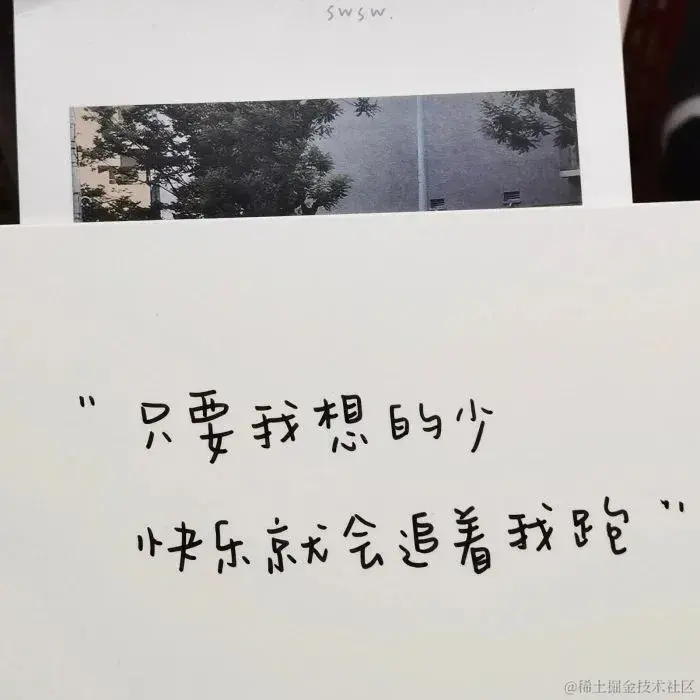 swsw.
"只要我想的少
快乐就会追着我跑"
@稀土掘金技术社区